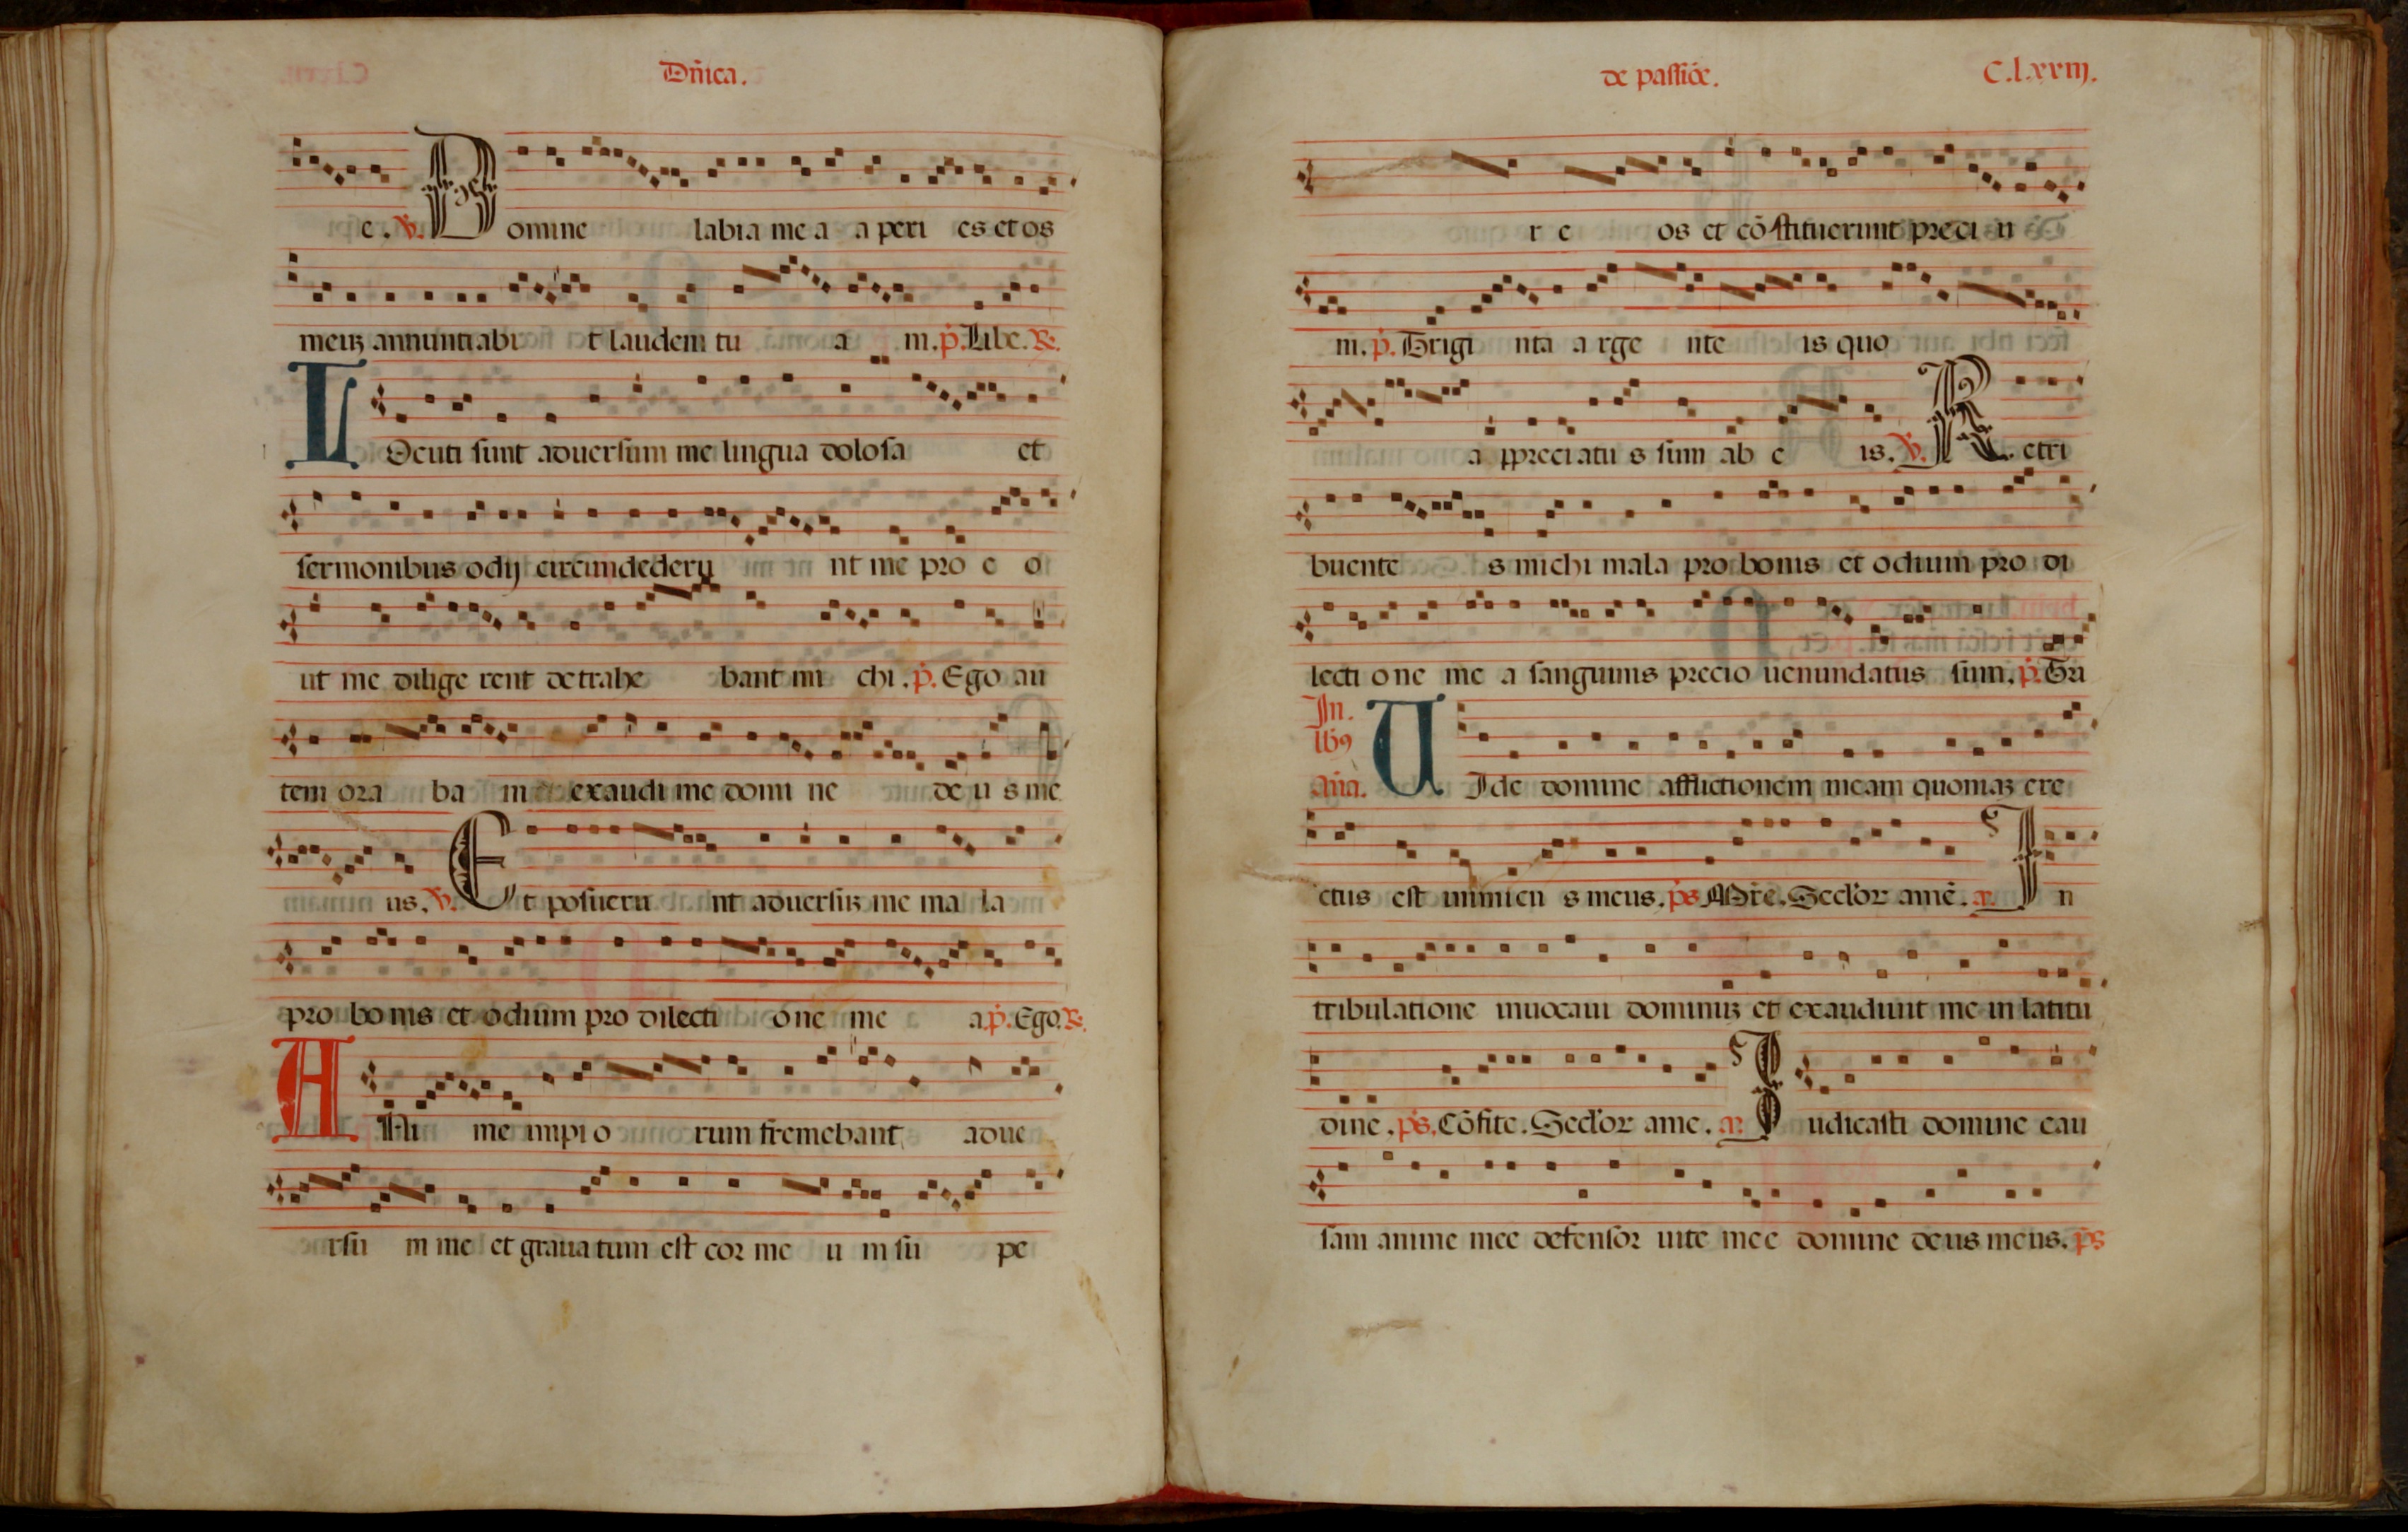 Dñica.
e. ℣. Domine labia me a a peri es et os
meuʒ annuntiabi t laudem tu a m. p̃. Libe. ℟.
LOcuti sunt aduersum me lingua dolosa et
sermonibus odij circundederu nt me pro e o
ut me dilige rent detrahe bant mi chi. p̃. Ego au
tem ora ba m exaudi me domi ne de u s me
us. ℣. Et posueru nt aduersuʒ me ma la
pro bo nis et odium pro dilecti one me a. p̃. Ego. ℟.
ANi me impi o rum fremebant adue
rsu m me et graua tum est cor me u m su pe
de passiōe. C.lxxiij.
r e os et cōstituerunt preci u
m. p̃. Trigi nta a rge nte is quo
a ppreci atu s sum ab e is. ℣. Retri
buente s michi mala pro bonis et odium pro di
lecti one me a sanguinis precio uenundatus sum. p̃. Tri
In.
lb9
aña. UIde domine afflictionem meam quoniaʒ ere
ctus est inimicu s meus. p̃s. Mr̃e. Secl'or amē. a. In
tribulatione inuocaui dominuʒ et exaudiuit me in latitu
dine. p̃s. Cōfite. Secl'or ame. a. Iudicasti domine cau
sam anime mee defensor uite mee domine deus meus. p̃s